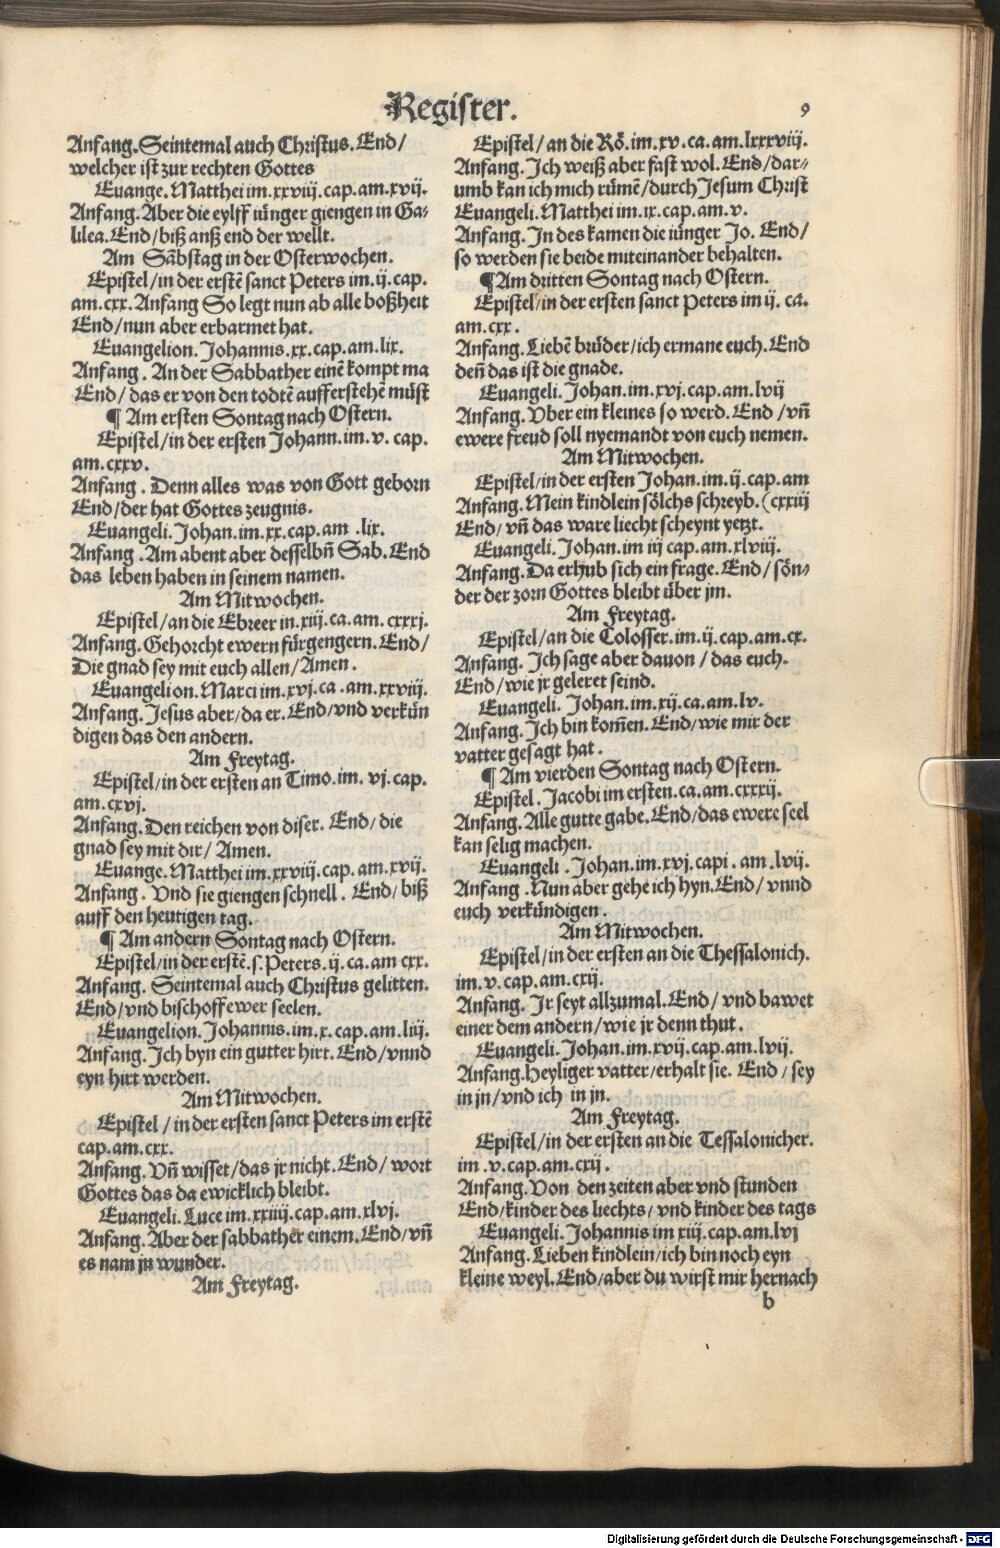 Register.
9
Anfang. Seintemal auch Christus. End/
welcher ist zur rechten Gottes
Euange. Matthei im. xxviij. cap. am. xvij.
Anfang. Aber die eylff iünger giengen in Ga-
lilea. End/ biß anß end der wellt.
Am Sãbstag in der Osterwochen.
Epistel/ in der erstẽ sanct Peters im. ij. cap.
am. cxx. Anfang So legt nun ab alle boßheit
End/ nun aber erbarmet hat.
Euangelion. Johannis. xx. cap. am. lix.
Anfang. An der Sabbather einẽ kompt ma
End/ das er von den todtẽ aufferstehẽ müst
¶ Am ersten Sontag nach Ostern.
Epistel/ in der ersten Johann. im. v. cap.
am. cxxv.
Anfang. Denn alles was von Gott geborn
End/ der hat Gottes zeugnis.
Euangeli. Johan. im. xx. cap. am. lix.
Anfang. Am abent aber desselbñ Sab. End
das leben haben in seinem namen.
Am Mitwochen.
Epistel/ an die Ebreer in. xiij. ca. am. cxxxj.
Anfang. Gehorcht ewern fürgengern. End/
Die gnad sey mit euch allen/ Amen.
Euangelion. Marci im. xvj. ca. am. xxviij.
Anfang. Jesus aber/ da er. End/ vnd verkün
digen das den andern.
Am Freytag.
Epistel/ in der ersten an Timo. im. vj. cap.
am. cxvj.
Anfang. Den reichen von diser. End/ die
gnad sey mit dir/ Amen.
Euange. Matthei im. xxviij. cap. am. xvij.
Anfang. Vnd sie giengen schnell. End/ biß
auff den heutigen tag.
¶ Am andern Sontag nach Ostern.
Epistel/ in der erstẽ. s. Peters. ij. ca. am cxx.
Anfang. Seintemal auch Christus gelitten.
End/ vnd bischoff ewer seelen.
Euangelion. Johannis. im. x. cap. am. liij.
Anfang. Ich byn ein gutter hirt. End/ vnnd
eyn hirt werden.
Am Mitwochen.
Epistel/ in der ersten sanct Peters im erstẽ
cap. am. cxx.
Anfang. Vñ wisset/ das jr nicht. End/ wort
Gottes das da ewicklich bleibt.
Euangeli. Luce im. xxiiij. cap. am. xlvj.
Anfang. Aber der sabbather einem. End/ vñ
es nam jn wunder.
Am Freytag.
Epistel/ an die Rö. im. xv. ca. am. lxxxviij.
Anfang. Ich weiß aber fast wol. End/ dar-
umb kan ich mich rümẽ/ durch Jesum Christ
Euangeli. Matthei im. ix. cap. am. v.
Anfang. In des kamen die iünger Jo. End/
so werden sie beide miteinander behalten.
¶ Am dritten Sontag nach Ostern.
Epistel/ in der ersten sanct Peters im ij. ca.
am. cxx.
Anfang. Liebẽ brüder/ ich ermane euch. End
deñ das ist die gnade.
Euangeli. Johan. im. xvj. cap. am. lvij
Anfang. Vber ein kleines so werd. End/ vñ
ewere freud soll nyemandt von euch nemen.
Am Mitwochen.
Epistel/ in der ersten Johan. im. ij. cap. am
Anfang. Mein kindlein sölchs schreyb. (cxxiij
End/ vñ das ware liecht scheynt yetzt.
Euangeli. Johan. im iij cap. am. xlviij.
Anfang. Da erhub sich ein frage. End/ sön-
der der zorn Gottes bleibt über jm.
Am Freytag.
Epistel/ an die Colosser. im. ij. cap. am. cx.
Anfang. Ich sage aber dauon/ das euch.
End/ wie jr geleret seind.
Euangeli. Johan. im. xij. ca. am. lv.
Anfang. Ich bin kom̃en. End/ wie mir der
vatter gesagt hat.
¶ Am vierden Sontag nach Ostern.
Epistel. Jacobi im ersten. ca. am. cxxxij.
Anfang. Alle gutte gabe. End/ das ewere seel
kan selig machen.
Euangeli. Johan. im. xvj. capi. am. lvij.
Anfang. Nun aber gehe ich hyn. End/ vnnd
euch verkündigen.
Am Mitwochen.
Epistel/ in der ersten an die Thessalonich.
im. v. cap. am. cxij.
Anfang. Jr seyt allzumal. End/ vnd bawet
einer dem andern/ wie jr denn thut.
Euangeli. Johan. im. xvij. cap. am. lvij.
Anfang. Heyliger vatter/ erhalt sie. End/ sey
in jn/ vnd ich in jn.
Am Freytag.
Epistel/ in der ersten an die Tessalonicher.
im. v. cap. am. cxij.
Anfang. Von den zeiten aber vnd stunden
End/ kinder des liechts/ vnd kinder des tags
Euangeli. Johannis im xiij. cap. am. lvj
Anfang. Lieben kindlein/ ich bin noch eyn
kleine weyl. End/ aber du wirst mir hernach
b
Digitalisierung gefördert durch die Deutsche Forschungsgemeinschaft - DFG